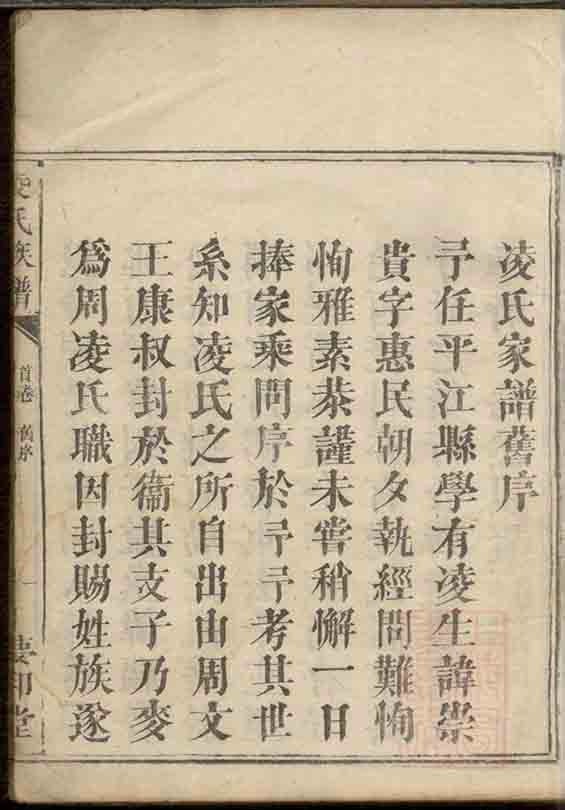 凌氏家譜舊序
予任平江縣學有凌生諱崇
貴字惠民朝夕執經問難恂
恂雅素恭謹未嘗稍懈一日
捧家乘問序於予予考其世
系知凌氏之所自出由周文
王康叔封於衞其支子乃麥
爲周凌氏職因封賜姓族遂
凌氏族譜
首卷 舊序